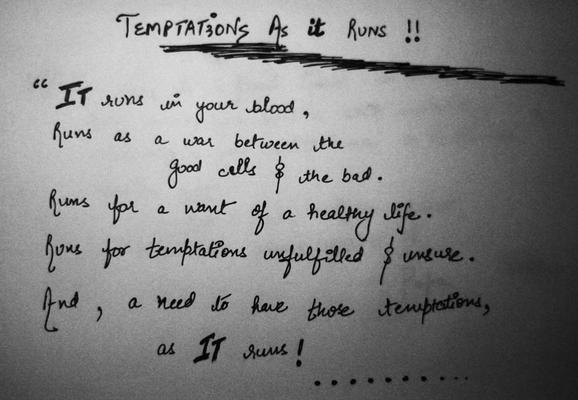 TEMPTATIONS As it RUNS !!
“ IT runs in your blood,
Runs as a war between the
good cells & the bad.
Runs for a want of a healthy life.
Runs for temptations unfulfilled & unsure.
And, a need to have those temptations,
as IT runs!
..........